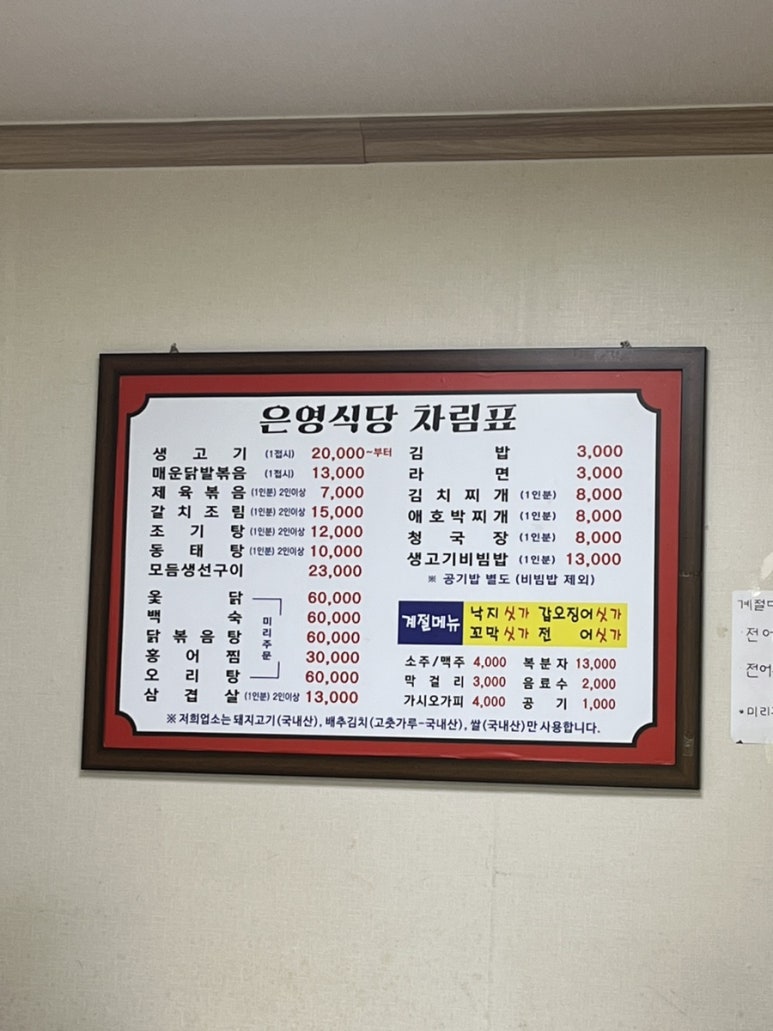 은영식당 차림표
생고기 (1접시) 20,000~부터
매운닭발볶음 (1접시) 13,000
제육볶음 (1인분) 2인이상 7,000
갈치조림 (1인분) 2인이상 15,000
조기탕 (1인분) 2인이상 12,000
동태탕 (1인분) 2인이상 10,000
모듬생선구이 23,000
옻닭 60,000
백숙 60,000
닭볶음탕 60,000
홍어찜 30,000
오리탕 60,000
미리주문
삼겹살 (1인분) 2인이상 13,000
김밥 3,000
라면 3,000
김치찌개 (1인분) 8,000
애호박찌개 (1인분) 8,000
청국장 (1인분) 8,000
생고기비빔밥 (1인분) 13,000
※ 공기밥 별도 (비빔밥 제외)
계절메뉴
낙지싯가 갑오징어싯가
꼬막싯가 전어싯가
소주/맥주 4,000 복분자 13,000
막걸리 3,000 음료수 2,000
가시오가피 4,000 공기 1,000
※ 저희업소는 돼지고기(국내산), 배추김치(고춧가루-국내산), 쌀(국내산)만 사용합니다.
전어